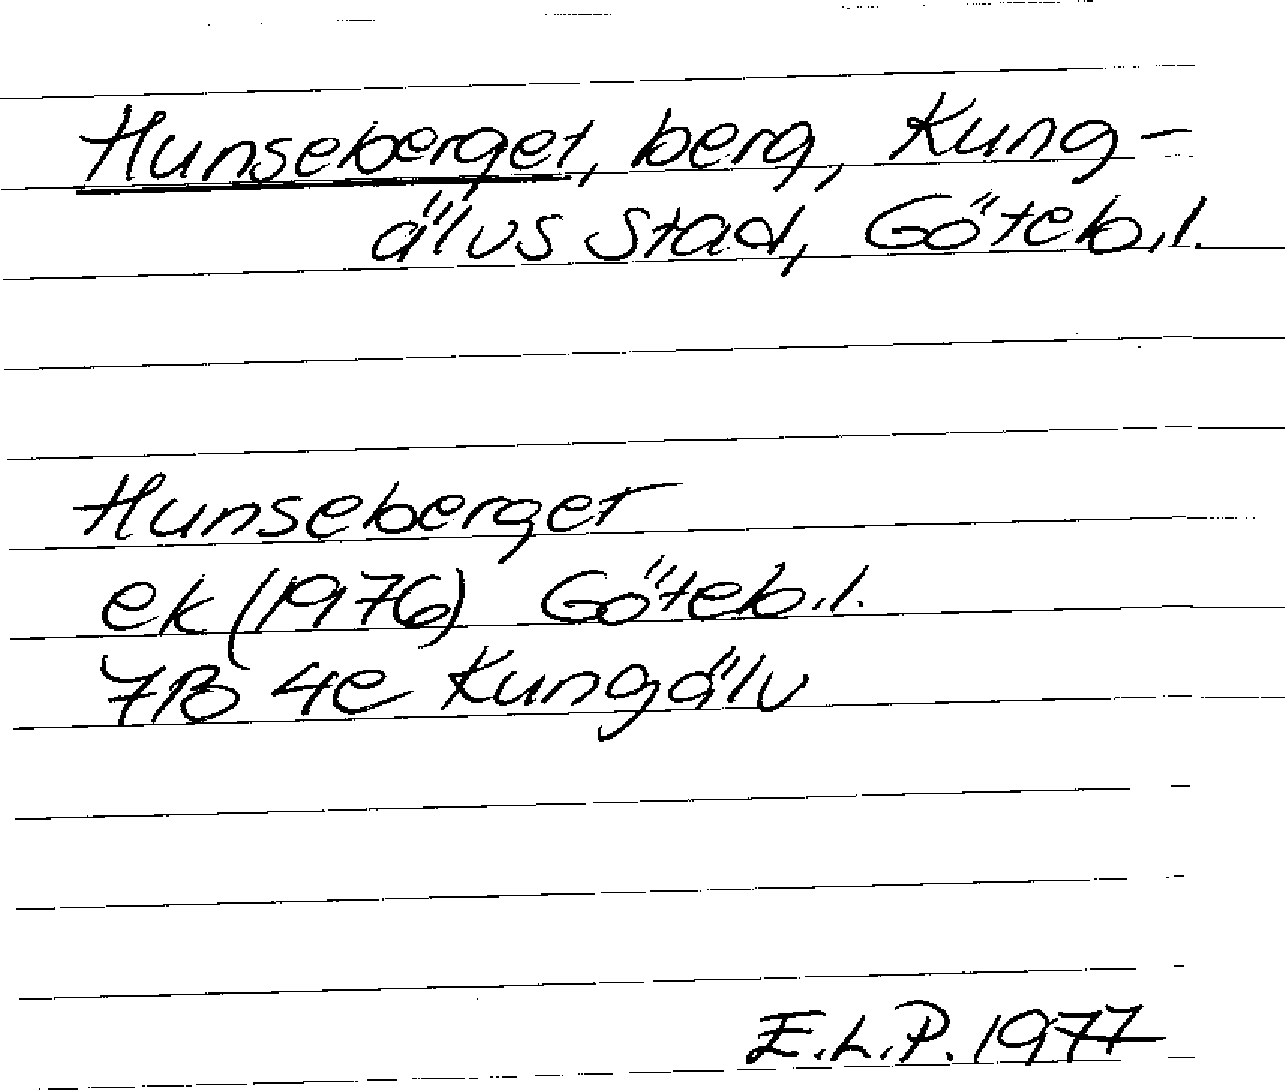 Hunseberget, berg, Kung-
älvs stad, Göteb.l.
Hunseberget
ek (1976) Göteb.l.
7B 4e Kungälv
E.L.P. 1977